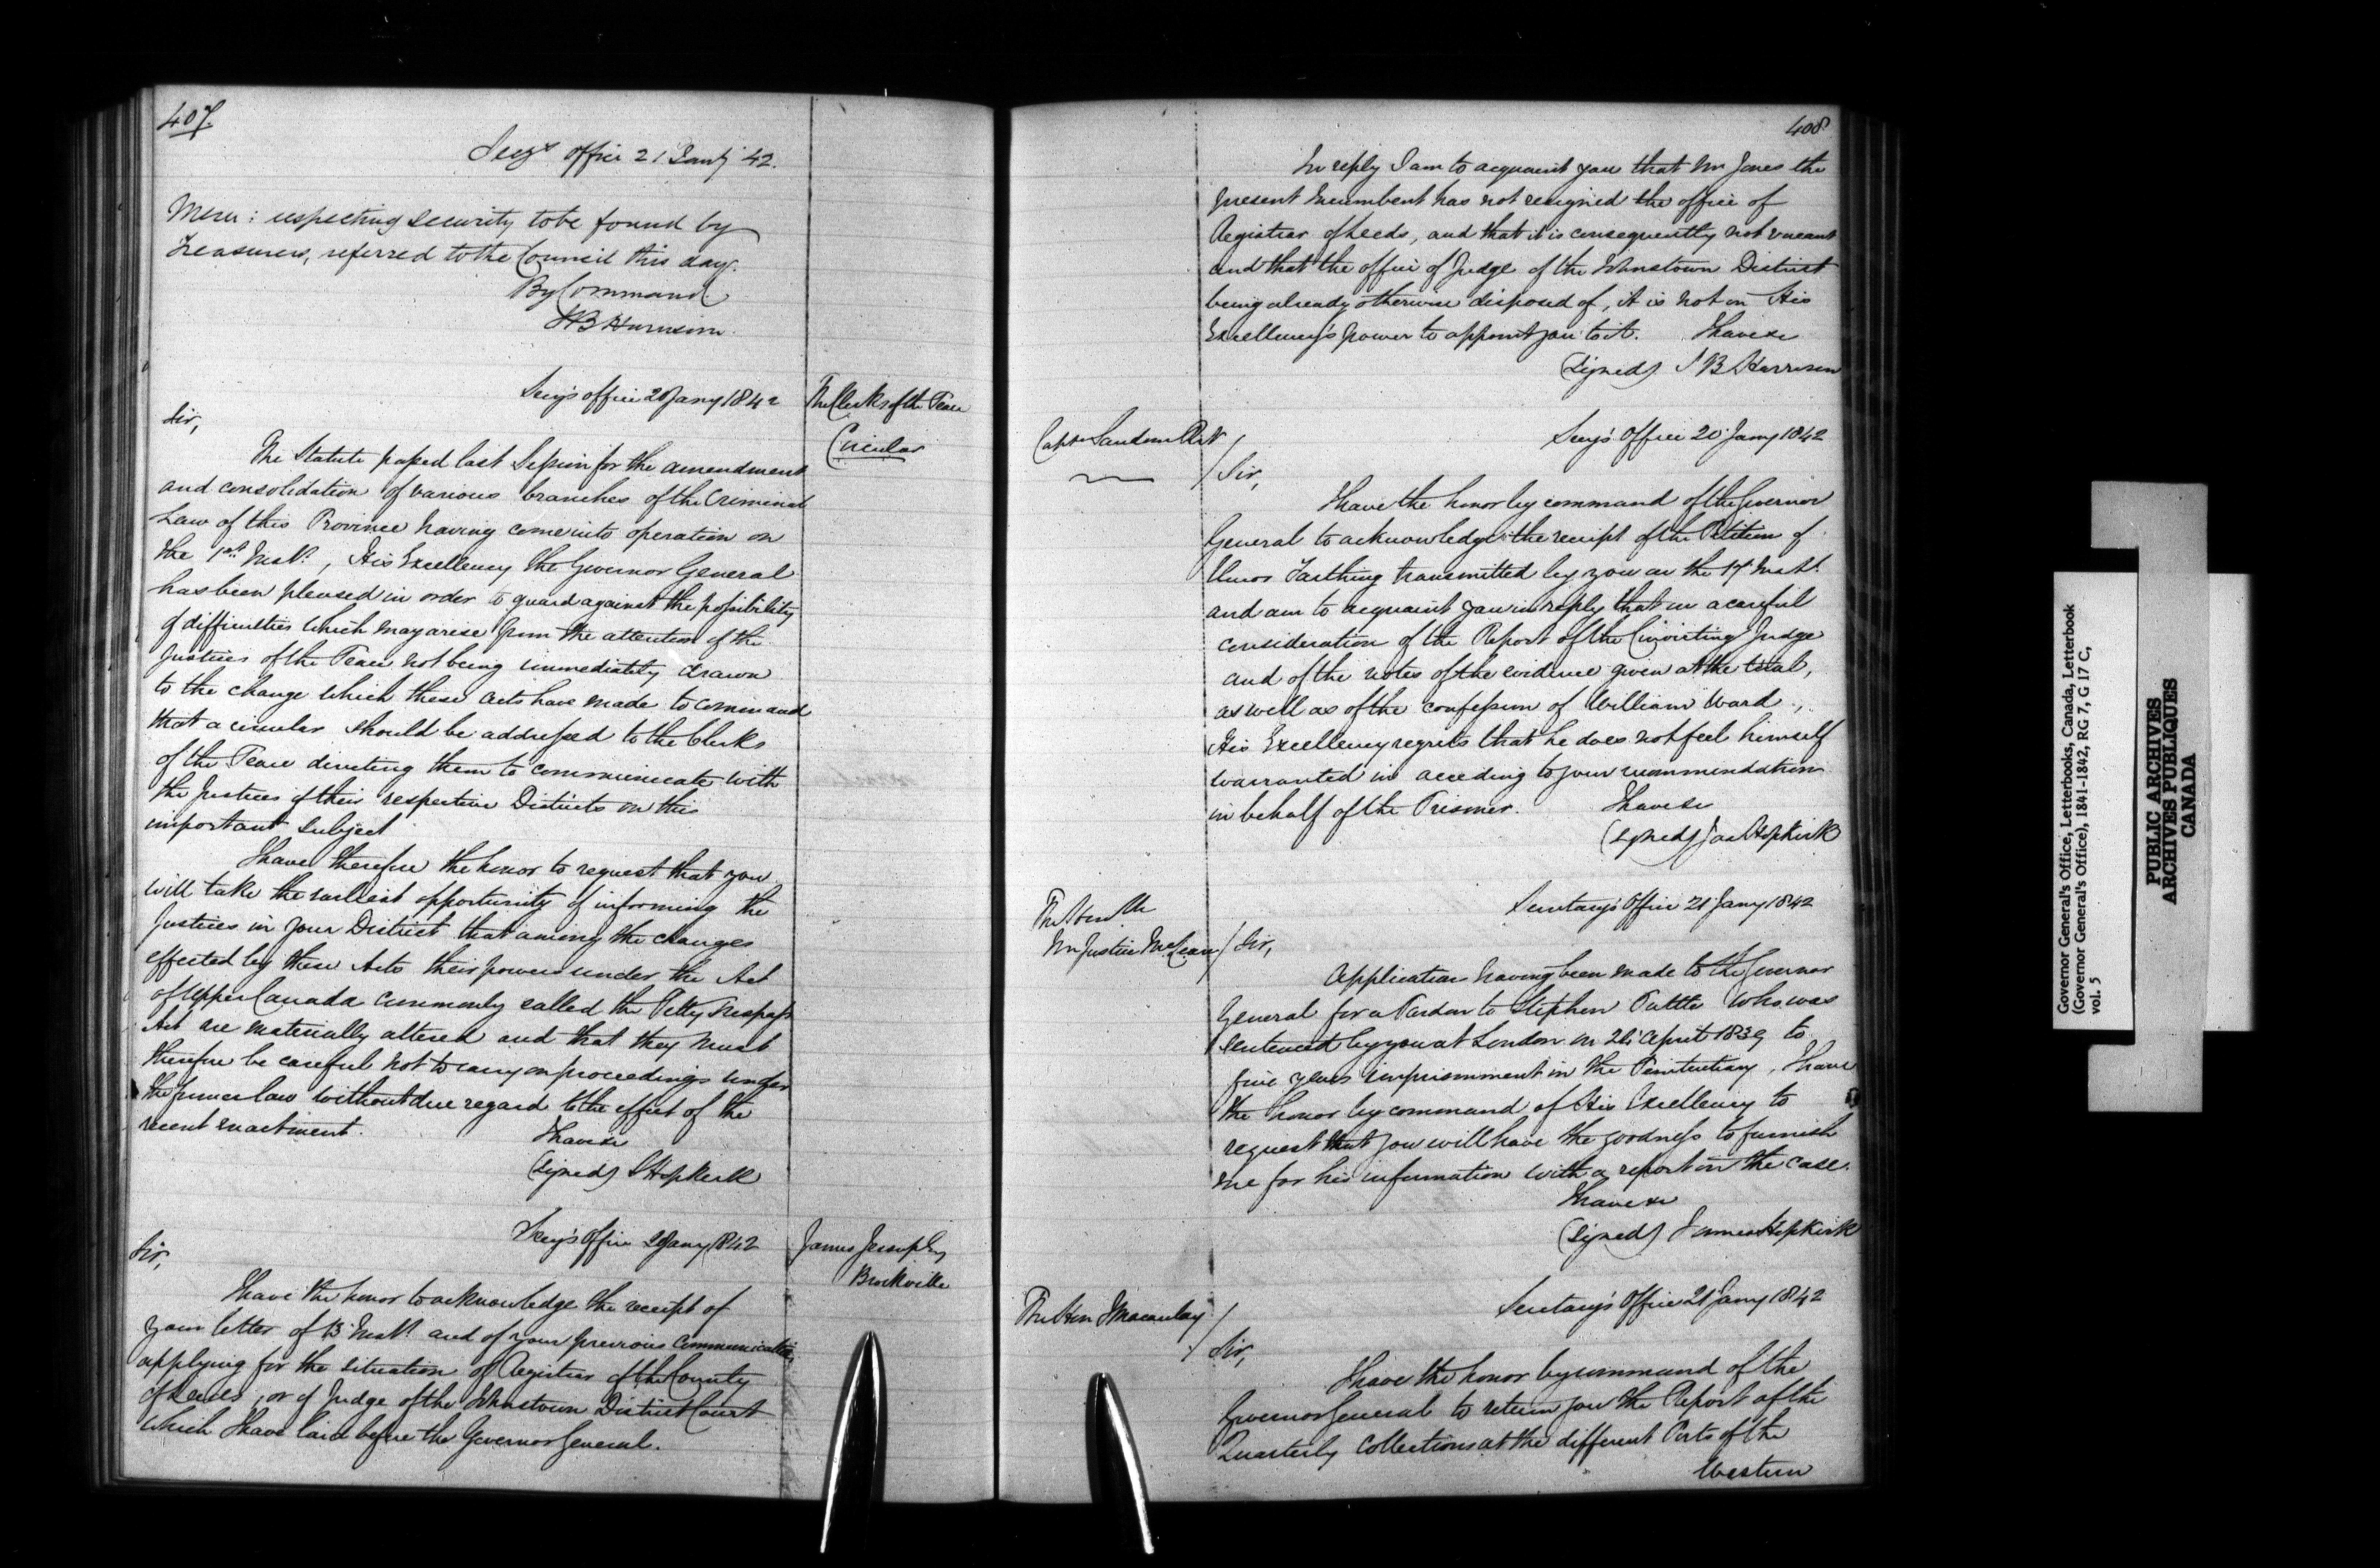 407.
Secy's Office 21 Jany 42.
Mem: respecting security to be found by
Treasurers, referred to the Council this day.
By Command
S B Harrison
Secy's office 20 Jany 1842
The Clerks of the Peace
Circular
Sir,
The Statute passed last Session for the amendment
and consolidation of various branches of the Criminal
Law of this Province having come into operation on
the 1st Inst., His Excellency the Governor General
has been pleased in order to guard against the possibility
of difficulties which may arise from the attention of the
Justices of the Peace not being immediately drawn
to the change which these acts have made to command
that a circular should be addressed to the Clerks
of the Peace directing them to communicate with
the Justices of their respective Districts on this
important subject
I have therefore the honor to request that you
will take the earliest opportunity of informing the
Justices in your District that among the changes
effected by these Acts their powers under the Act
of Upper Canada commonly called the Petty Trespass
Act are materially altered and that they must
therefore be careful not to carry on proceedings under
the former law without due regard to the effect of the
recent enactment.
I have &c
(Signed) J Hopkirk
Secy's Office 20 Jany 1842
James Jessup Esq
Brockville
Sir,
I have the honor to acknowledge the receipt of
your letter of 13 Inst. and of your previous communication
applying for the situation of Registrar of the County
of Leeds, or of Judge of the Johnstown District Court
which I have laid before the Governor General.
408
In reply I am to acquaint you that Mr Jones the
present Incumbent has not resigned the office of
Registrar of Leeds, and that it is consequently not vacant
and that the office of Judge of the Johnstown District
being already otherwise disposed of, it is not in His
Excellency's power to appoint you to it. I have &c
(Signed) S B Harrison
Captn Sandom RN
Secy's Office 20 Jany 1842
Sir,
I have the honor by command of the Governor
General to acknowledge the receipt of the Petition of
Farthing transmitted by you on the 17 Inst.
and am to acquaint you in reply that on a careful
consideration of the Report of the Convicting Judge
and of the notes of the evidence given at the trial,
as well as of the confession of William Ward,
His Excellency regrets that he does not feel himself
warranted in acceding to your recommendation
in behalf of the Prisoner. I have &c
(Signed) Jas Hopkirk
Secretary's Office 21 Jany 1842
The Honble
Mr Justice McLean
Sir,
Application having been made to the Governor
General for a Pardon to Stephen Tuttle who was
sentenced by you at London on 26 April 1839 to
five years imprisonment in the Penitentiary, I have
the honor by command of His Excellency to
request that you will have the goodness to furnish
me for his information with a report on the case.
I have &c
(Signed) James Hopkirk
Secretary's Office 21 Jany 1842
The Hon J Macaulay
Sir,
I have the honor by command of the
Governor General to return you the Report of the
Quarterly Collections at the different Ports of the
Western
Governor General's Office, Letterbooks, Canada, Letterbook
(Governor General's Office), 1841-1842, RG 7, G 17 C,
vol. 5
PUBLIC ARCHIVES
ARCHIVES PUBLIQUES
CANADA